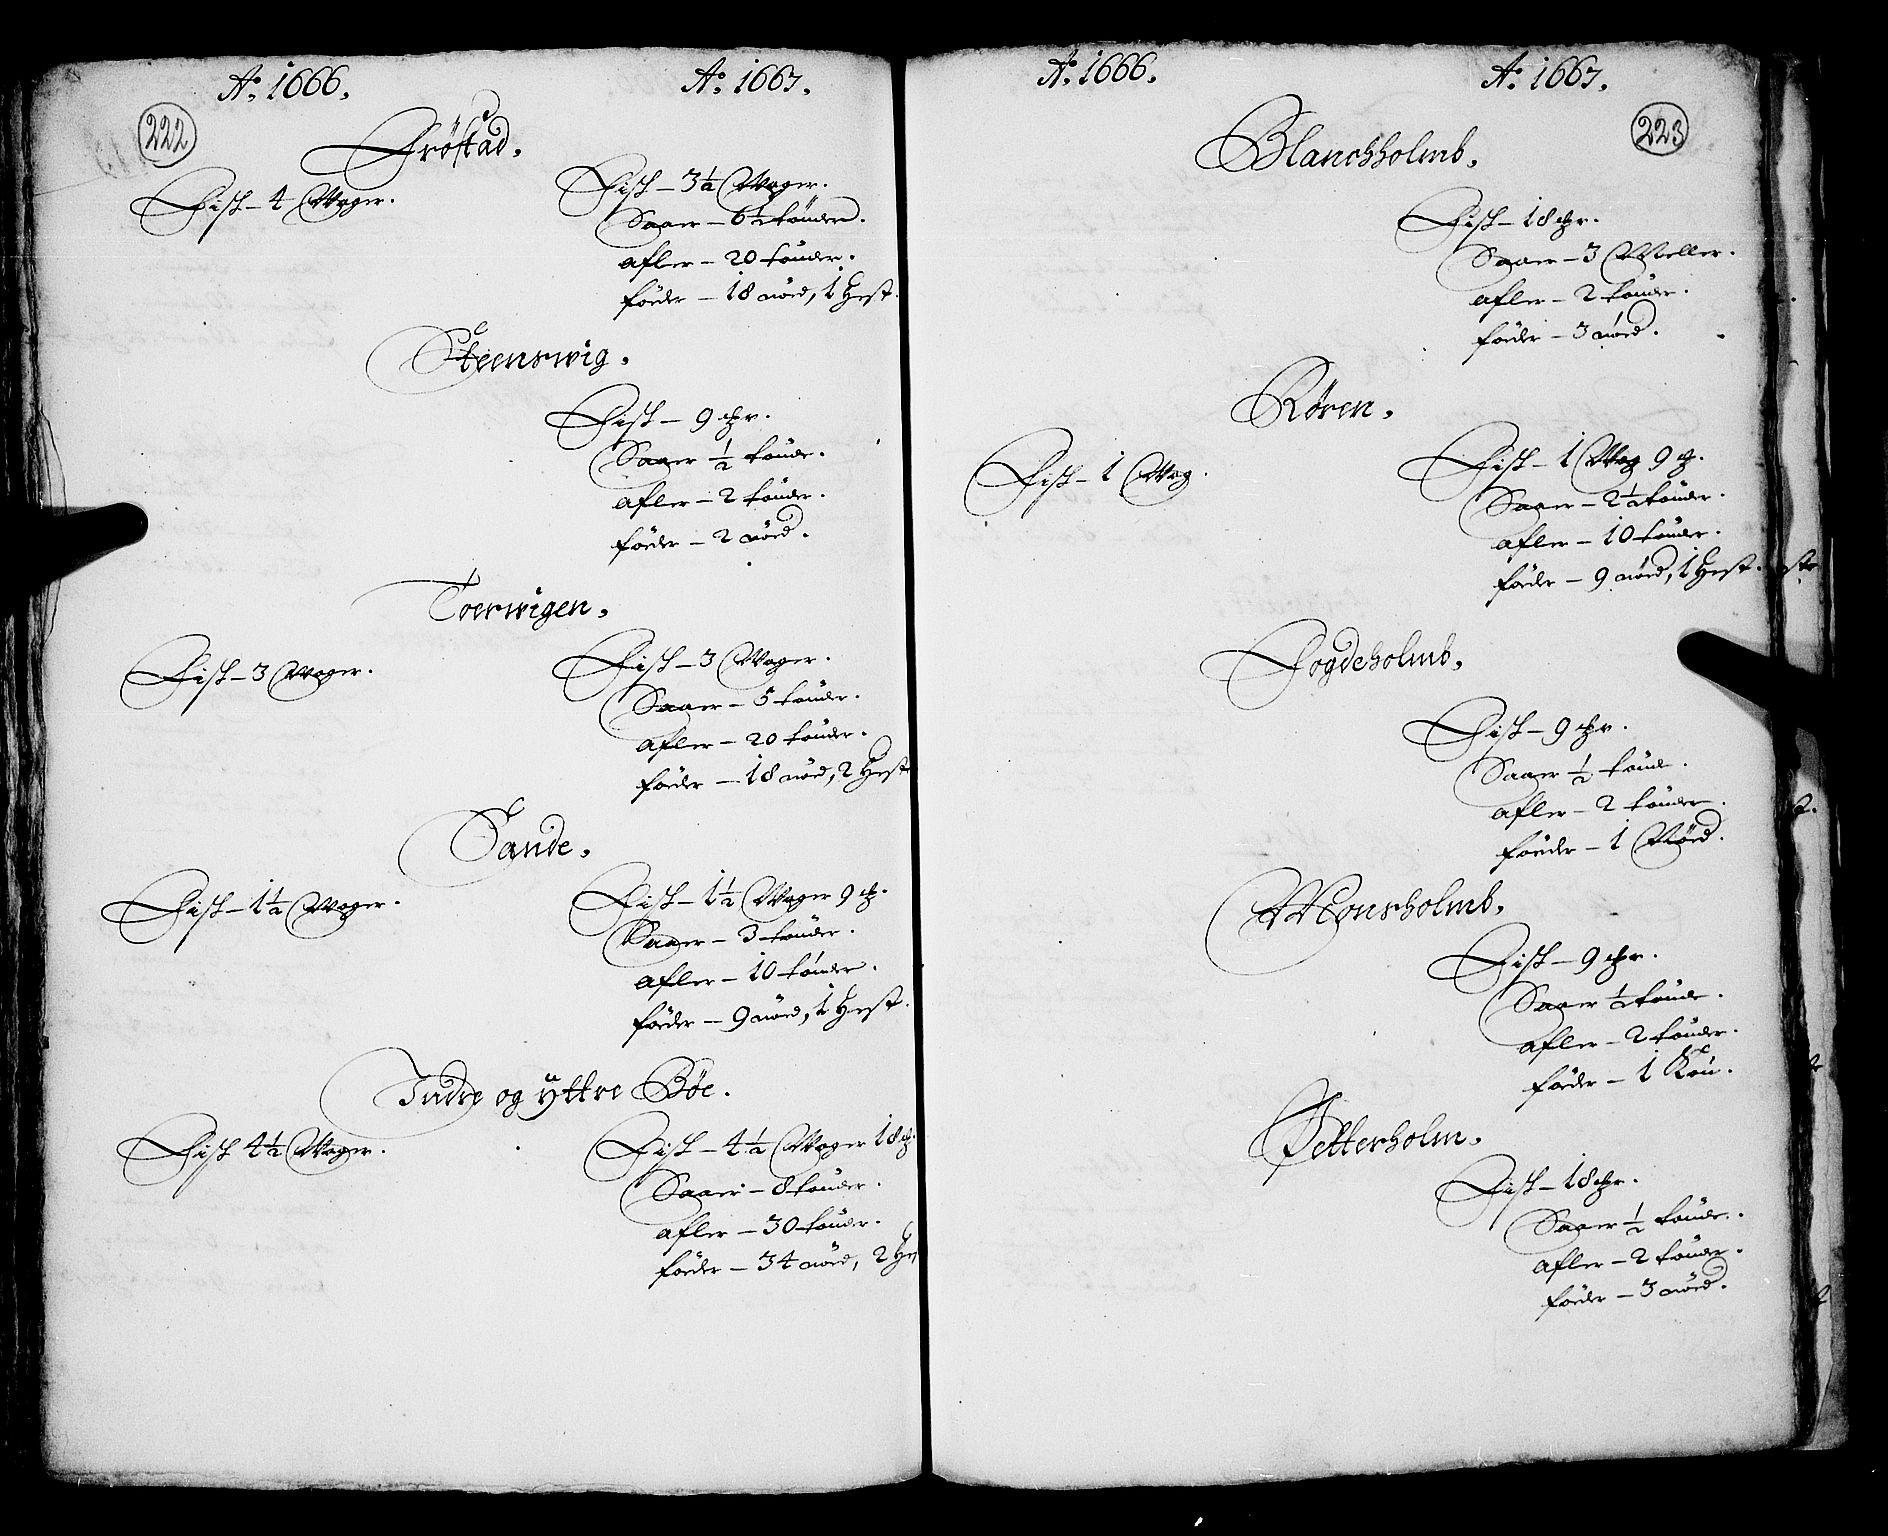 Aº. 1666.
Aº. 1667.
222
Frøstad.
Fisk – 4 Woger.
Fisk – 3½ Woger.
Saaer – 6½ tønder.
afler – 20 tønder.
føder – 18 nöed, 1 Hest.
Steenswig.
Fisk – 9 pr.
Saaer ½ tønde.
afler – 2 tønder.
føder – 2 nöed.
Toerwigen.
Fisk – 3 Woger.
Fisk – 3 Woger.
Saaer – 5 tønder.
afler – 20 tønder.
føder – 18 nöed, 2 Hest
Sande.
Fisk – 1½ Woger.
Fisk – 1½ Woger 9 p.
Saaer – 3 tønder.
afler – 10 tønder.
føder – 9 nöed, 1 Hest.
Indre og Yttre Bøe.
Fisk 4½ Woger.
Fisk – 4½ Woger 18 p.
Saaer – 8 tønder.
afler – 30 tønder.
føder – 34 nöed, 2 Hes
Aº. 1666.
Aº. 1667.
223
Blanchholmb.
Fisk – 18 pr.
Saaer – 3 Meller.
afler – 2 tønder.
føder – 3 nöed.
Røren.
Fisk – 1 Wog.
Fisk – 1 Wog 9 p.
Saaer – 2½ tønder.
afler – 10 tønder.
føder – 9 nöed, 1 Hest.
Fogdeholmb.
Fisk – 9 pr.
Saaer ½ tønde.
afler – 2 tønder.
føder – 1 Nöed.
Monsholmb.
Fisk – 9 pr.
Saaer ½ tønde.
afler – 2 tønder.
føder – 1 Kou.
Petterholm.
Fisk – 18 pr.
Saaer ½ tønde.
afler – 2 tønder.
føder – 3 nöed.